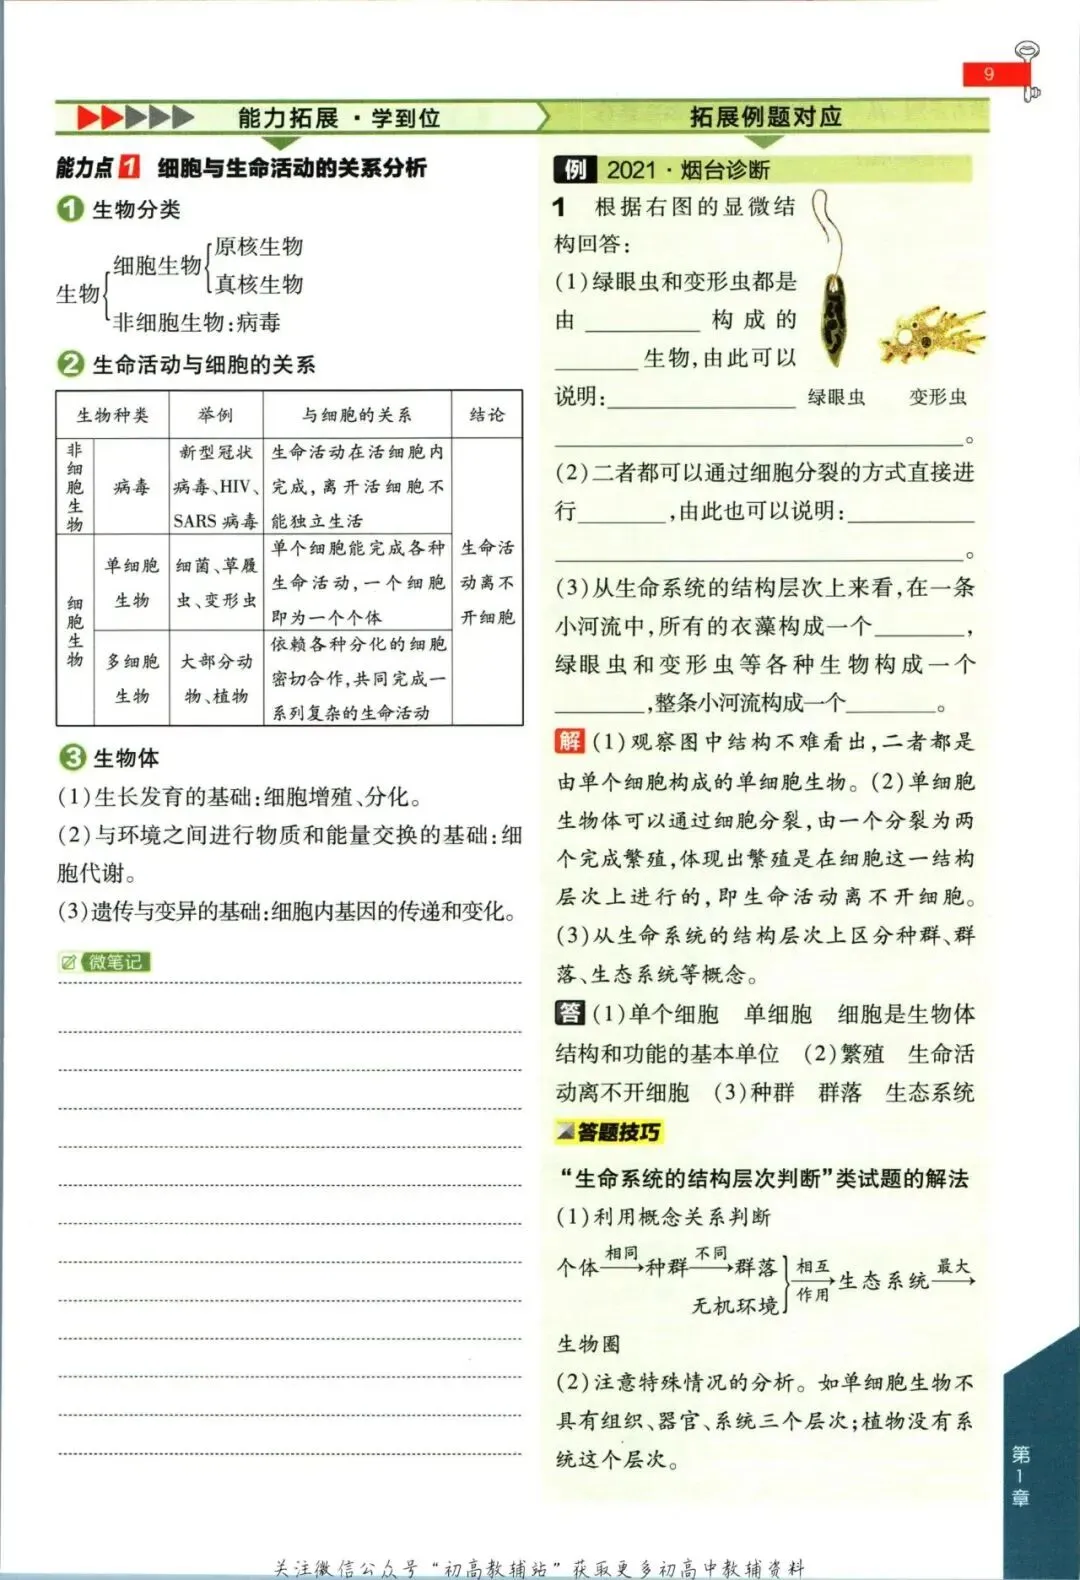 9
能力拓展·学到位
能力点1 细胞与生命活动的关系分析
1 生物分类
生物{细胞生物{原核生物
真核生物
非细胞生物:病毒
2 生命活动与细胞的关系
生物种类 举例 与细胞的关系 结论
非细胞生物 病毒 新型冠状病毒、HIV、SARS 病毒 生命活动在活细胞内完成,离开活细胞不能独立生活
细胞生物 单细胞生物 细菌、草履虫、变形虫 单个细胞能完成各种生命活动,一个细胞即为一个个体
多细胞生物 大部分动物、植物 依赖各种分化的细胞密切合作,共同完成一系列复杂的生命活动
生命活动离不开细胞
3 生物体
(1)生长发育的基础:细胞增殖、分化。
(2)与环境之间进行物质和能量交换的基础:细
胞代谢。
(3)遗传与变异的基础:细胞内基因的传递和变化。
微笔记
拓展例题对应
例 2021·烟台诊断
1 根据右图的显微结
构回答:
(1)绿眼虫和变形虫都是
由________构成的
________生物,由此可以
说明:________
________。
绿眼虫 变形虫
(2)二者都可以通过细胞分裂的方式直接进
行________,由此也可以说明:________
________。
(3)从生命系统的结构层次上来看,在一条
小河流中,所有的衣藻构成一个________,
绿眼虫和变形虫等各种生物构成一个
________,整条小河流构成一个________。
解 (1)观察图中结构不难看出,二者都是
由单个细胞构成的单细胞生物。(2)单细胞
生物体可以通过细胞分裂,由一个分裂为两
个完成繁殖,体现出繁殖是在细胞这一结构
层次上进行的,即生命活动离不开细胞。
(3)从生命系统的结构层次上区分种群、群
落、生态系统等概念。
答 (1)单个细胞 单细胞 细胞是生物体
结构和功能的基本单位 (2)繁殖 生命活
动离不开细胞 (3)种群 群落 生态系统
答题技巧
“生命系统的结构层次判断”类试题的解法
(1)利用概念关系判断
个体 相同→ 种群 不同→ 群落
无机环境} 相互作用→ 生态系统 最大→
生物圈
(2)注意特殊情况的分析。如单细胞生物不
具有组织、器官、系统三个层次;植物没有系
统这个层次。
第1章
关注微信公众号“初高教辅站”获取更多初高中教辅资料